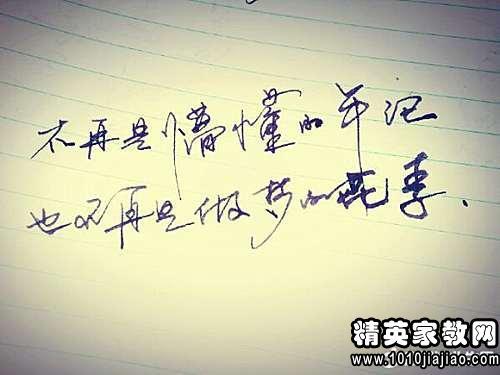 不再是懵懂的年纪
也不再是做梦的花季.
精英家教网
www.1010jiajiao.com